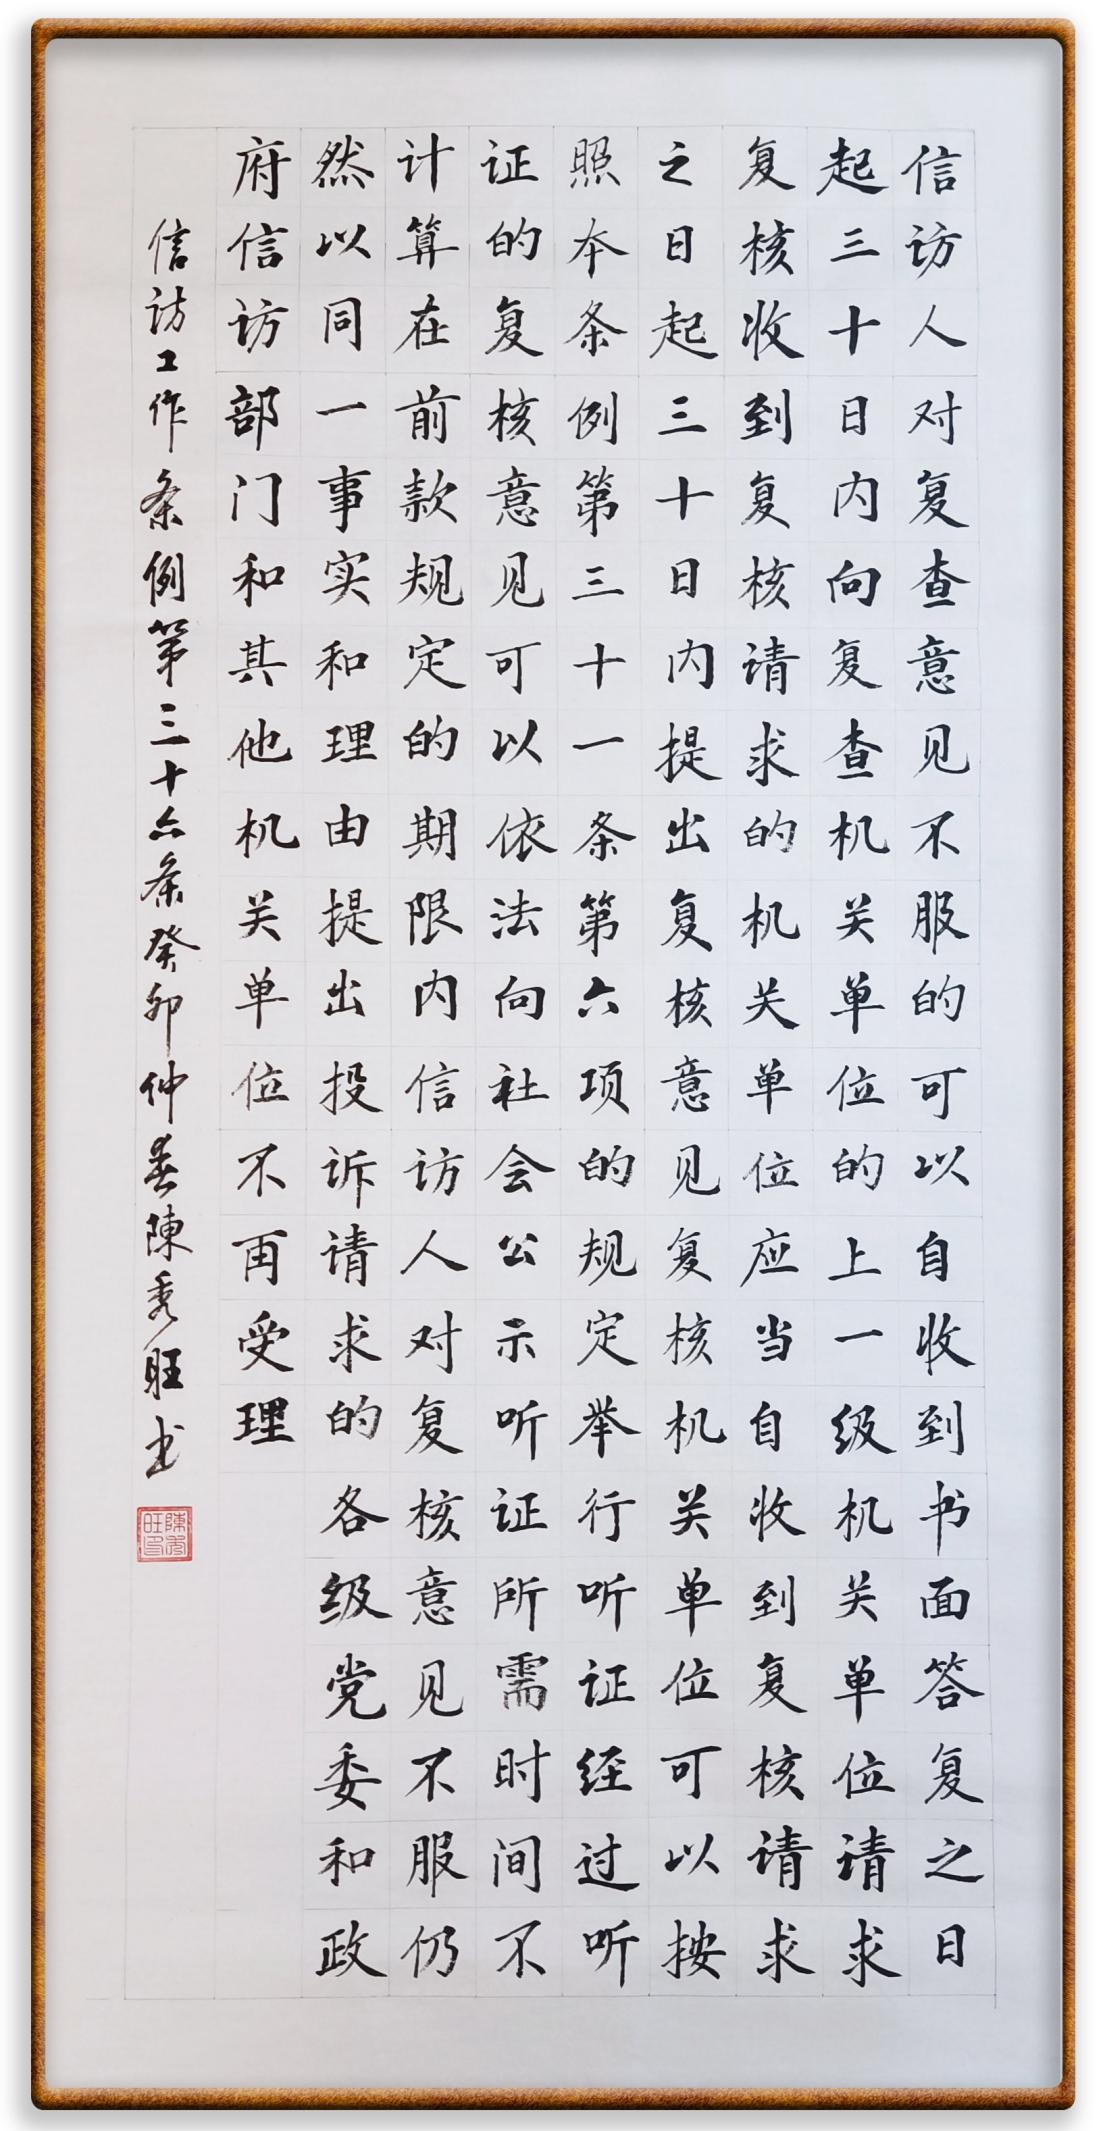 信访人对复查意见不服的可以自收到书面答复之日
起三十日内向复查机关单位的上一级机关单位请求
复核收到复核请求的机关单位应当自收到复核请求
之日起三十日内提出复核意见复核机关单位可以按
照本条例第三十一条第六项的规定举行听证经过听
证的复核意见可以依法向社会公示听证所需时间不
计算在前款规定的期限内信访人对复核意见不服仍
然以同一事实和理由提出投诉请求的各级党委和政
府信访部门和其他机关单位不再受理
信访工作条例第三十六条癸卯仲春陳秀旺书
陳秀旺印